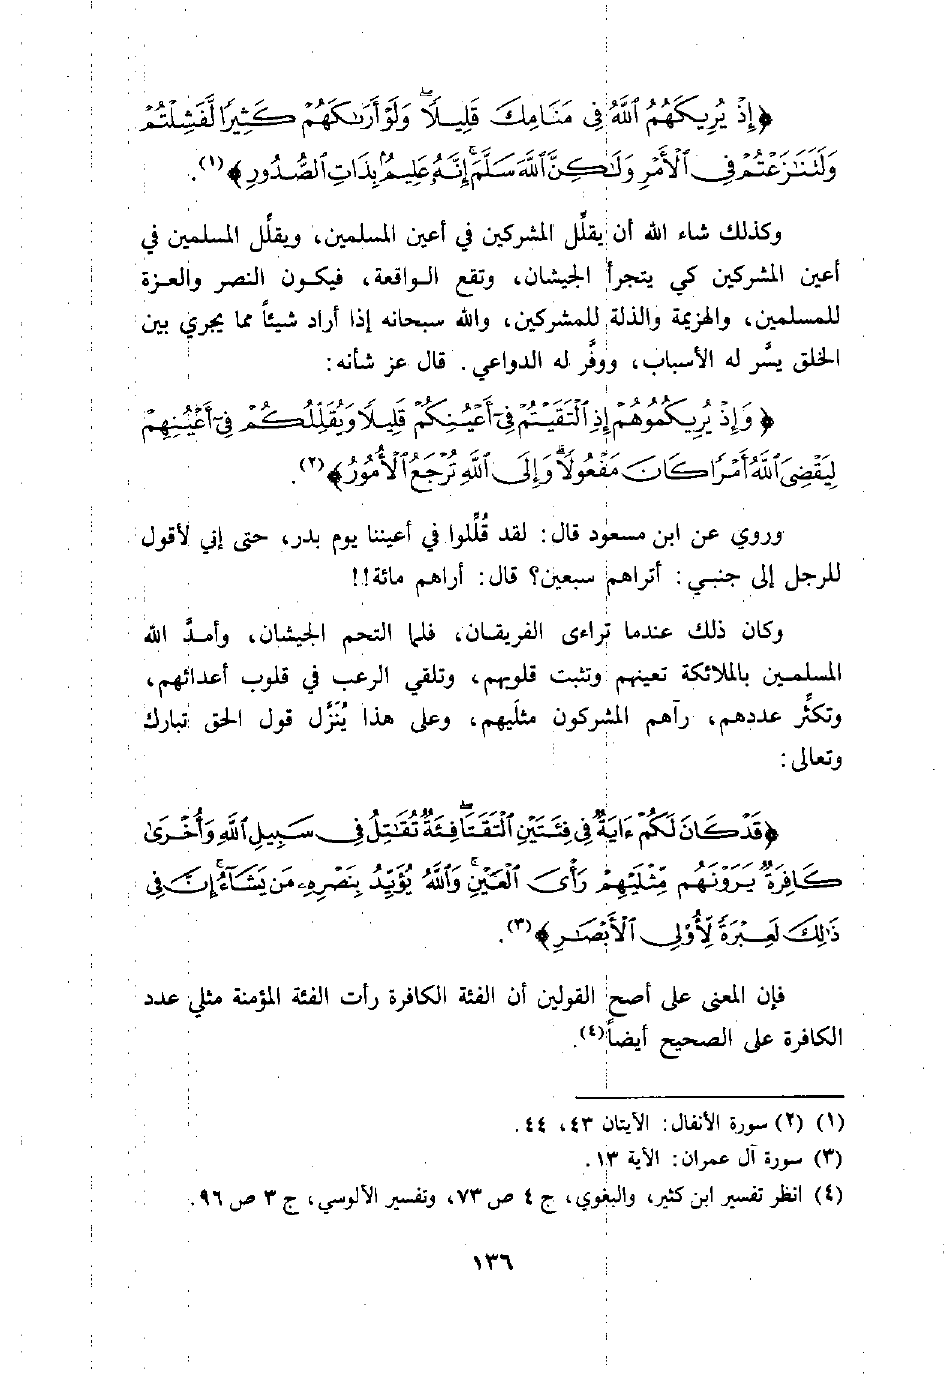 ﴿إِذْ يُرِيكَهُمُ ٱللَّهُ فِى مَنَامِكَ قَلِيلًاۖ وَلَوْ أَرَىٰكَهُمْ كَثِيرًا لَّفَشِلْتُمْ
وَلَتَنَٰزَعْتُمْ فِى ٱلْأَمْرِ وَلَٰكِنَّ ٱللَّهَ سَلَّمَۚ إِنَّهُۥ عَلِيمٌۢ بِذَاتِ ٱلصُّدُورِ﴾(١).
وكذلك شاء الله أن يقلِّل المشركين في أعين المسلمين، ويقلِّل المسلمين في
أعين المشركين كي يتجرأ الجيشان، وتقع الواقعة، فيكون النصر والعزة
للمسلمين، والهزيمة والذلة للمشركين، والله سبحانه إذا أراد شيئاً مما يجري بين
الخلق يسَّر له الأسباب، ووفَّر له الدواعي. قال عز شأنه:
﴿وَإِذْ يُرِيكُمُوهُمْ إِذِ ٱلْتَقَيْتُمْ فِىٓ أَعْيُنِكُمْ قَلِيلًا وَيُقَلِّلُكُمْ فِىٓ أَعْيُنِهِمْ
لِيَقْضِىَ ٱللَّهُ أَمْرًا كَانَ مَفْعُولًاۗ وَإِلَى ٱللَّهِ تُرْجَعُ ٱلْأُمُورُ﴾(٢).
وروي عن ابن مسعود قال: لقد قُلِّلوا في أعيننا يوم بدر، حتى إني لأقول
للرجل إلى جنبي: أتراهم سبعين؟ قال: أراهم مائة!!
وكان ذلك عندما تراءى الفريقان، فلما التحم الجيشان، وأمدَّ الله
المسلمين بالملائكة تعينهم وتثبت قلوبهم، وتلقي الرعب في قلوب أعدائهم،
وتكثِّر عددهم، رآهم المشركون مثلَيهم، وعلى هذا يُنَزَّل قول الحق تبارك
وتعالى:
﴿قَدْ كَانَ لَكُمْ ءَايَةٌ فِى فِئَتَيْنِ ٱلْتَقَتَاۖ فِئَةٌ تُقَٰتِلُ فِى سَبِيلِ ٱللَّهِ وَأُخْرَىٰ
كَافِرَةٌ يَرَوْنَهُم مِّثْلَيْهِمْ رَأْىَ ٱلْعَيْنِۚ وَٱللَّهُ يُؤَيِّدُ بِنَصْرِهِۦ مَن يَشَآءُۗ إِنَّ فِى
ذَٰلِكَ لَعِبْرَةً لِّأُو۟لِى ٱلْأَبْصَٰرِ﴾(٣).
فإن المعنى على أصح القولين أن الفئة الكافرة رأت الفئة المؤمنة مثلي عدد
الكافرة على الصحيح أيضاً(٤).
(١) (٢) سورة الأنفال: الآيتان ٤٣، ٤٤.
(٣) سورة آل عمران: الآية ١٣.
(٤) انظر تفسير ابن كثير، والبغوي، ج ٤ ص ٧٣، وتفسير الآلوسي، ج ٣ ص ٩٦.
١٣٦